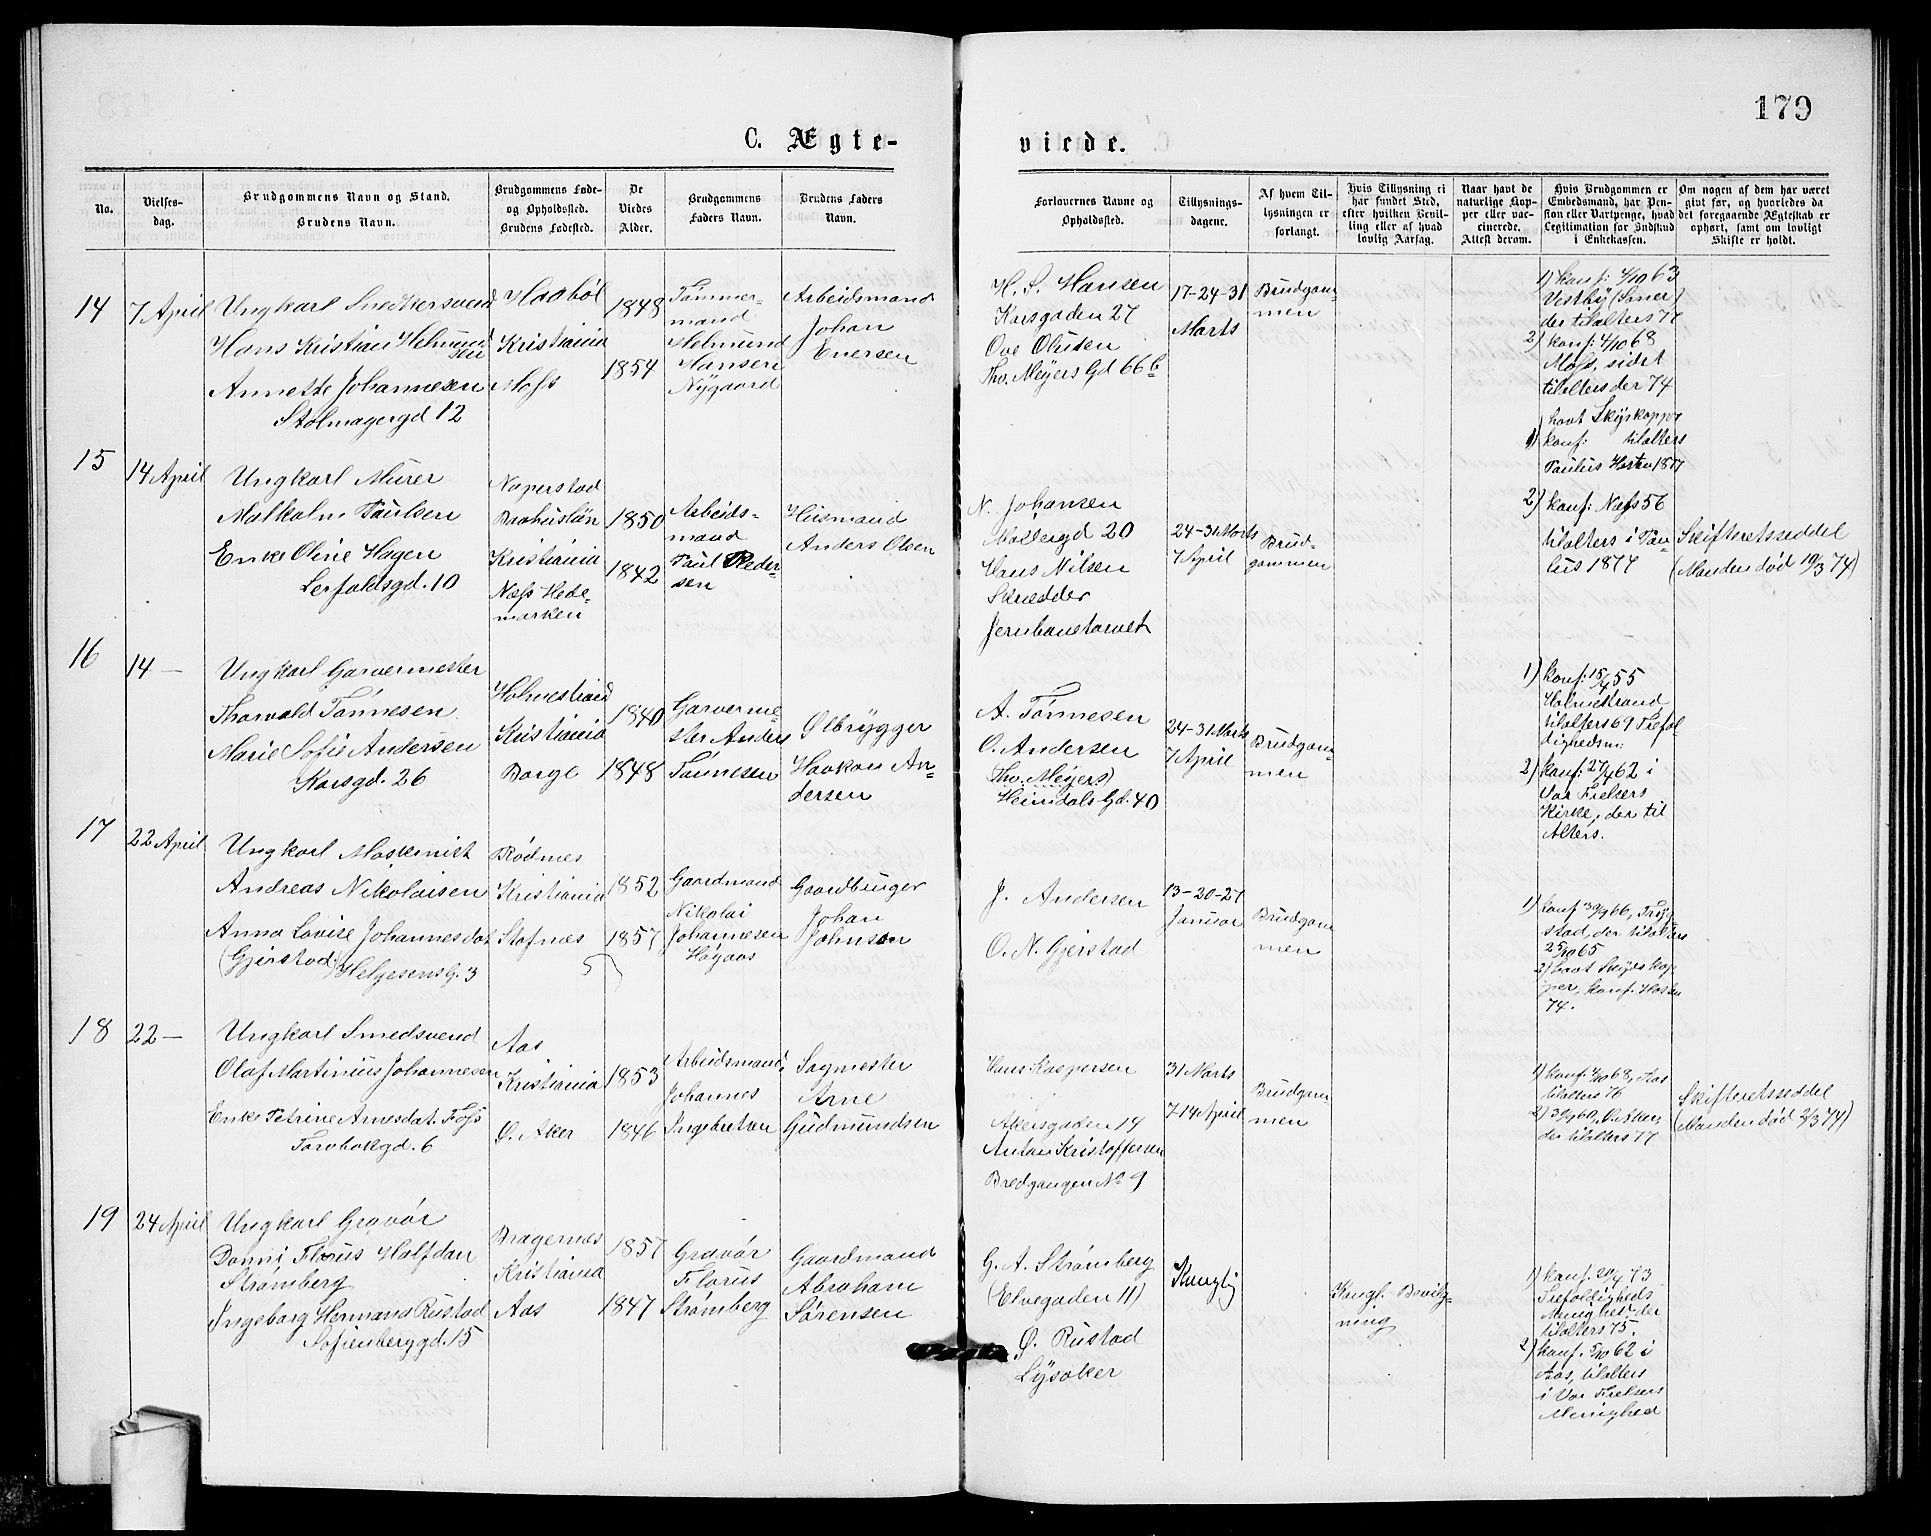 179
C. Ægte-
viede.
No.
Vielses-
dag.
Brudgommens Navn og Stand.
Brudens Navn.
Brudgommens Føde-
og Opholdssted.
Brudens Fødested.
De
Viedes
Alder.
Brudgommens
Faders Navn.
Brudens Faders
Navn.
Forlovernes Navne og
Opholdssted.
Tillysnings-
dagene.
Af hvem Til-
lysningen er
forlangt.
Hvis Tillysning ei
har fundet Sted,
efter hvilken Bevil-
ling eller af hvad
lovlig Aarsag.
Naar havt de
naturlige Kop-
per eller vac-
cinerede.
Attest derom.
Hvis Brudgommen er
Embedsmand, har Pen-
sion eller Vartpenge, hvad
Legitimation for Indskud
i Enkekassen.
Om nogen af dem har været
gift før, og hvorledes da
det foregaaende Ægteskab er
ophørt, samt om lovligt
Skifte er holdt.
14
7 April
Ungkarl Snedkersvend
Hans Kristian Helmund
sen
Annette Johannesen
Stolmagergd 12
Haabøl
Kristiania
Moss
1848
1854
Tømmer-
mand
Helmund
Hansen
Nygaard
Arbeidsmand
Johan
Enersen
H. S. Hansen
Korsgaden 27
Ove Olusen
Thv. Meyers Gd 66 b
17-24-31
Marts
Brudgom-
men
1) konf: 4/10 63
Vestby (Smer)
der tilalters 77
2) konf: 4/10 68
Moss, sidst
tilalters der 74
15
14 April
Ungkarl Murer
Malkolm Paulsen
Enke Oline Hagen
Lerfoldsgd. 10
Naperstad
Baahuslän
Kristiania
Næs Hede-
marken
1850
1842
Arbeids-
mand
Paul Peder-
sen
Husmand
Anders Olsen
N. Johansen
Møllergd 20
Hans Nilsen
Skrædder
Jernbanetorvet
24-31 Marts
7 April
Brud-
gommen
havt Skyskopper
1) konf: tilalters
Paulus Høsten 1877
2) konf: Næs 56
tilalters i Pau-
lus 1877
Skifteretsseddel
(Manden død 19/3 74)
16
14 —
Ungkarl Garvermester
Thorvald Tønnesen
Marie Sofie Andersen
Korsgd. 26
Holmestrand
Kristiania
Borge
1840
1848
Garverme
ster Anders
Tønnesen
Ølbrygger
Haakon An-
dersen
A. Tønnesen
O. Andersen
Thv. Meyers
Heimdals Gd. 40
24-31 Marts
7 April
Brudgom-
men
1) konf: 15/4 55
Holmestrand
tilalters 69 Trefol
dighedsm:
2) konf: 27/4 62 i
Vor Frelsers
Kirke, der til
Alters.
17
22 April
Ungkarl Maskinist
Andreas Nikolaisen
Anna Lovise Johannesdat
(Gjerstad) Helgesens G. 3
Rødnes
Kristiania
Stafnæs
1852
1857
Gaardmand
Nikolai
Johannesen
Høgaas
Gaardbruger
Johan
Johnsen
J. Andersen
O. N. Gjerstad
13-20-27
Januar
Brudgom
men
1) konf 30/9 66, Tryg-
stad, der tilalters
25/10 65
2) havt Skydskop-
per, konf. Høsten
74.
18
22 —
Ungkarl Smedsvend
Olaf Martinius Johannesen
Enke Petrine Arnesdat. Foss
Torvbakgd. 6
Aas
Kristiania
Ø. Aker
1853
1846
Arbeidsmand
Johannes
Ingebretsen
Sagmester
Arne
Gudmundsen
Hans Kaspersen
Akersgaden 14
Anton Kristoffersen
Bredgangen No 9
31 Marts
7-14 April
Brudgom-
men
1) konf: 4/10 68, Aas
tilalters 76
2) 30/9 60, Ø. Aker,
der tilalters 77
Skifteretsseddel
(Manden død 2/3 74)
19
24 April
Ungkarl Gravør
Danni Florus Halfdan
Strømberg
Ingeborg Hermana Rustad
Sofienberggd. 15
Bragernæs
Kristiania
Aas
1857
1847
Gravør
Florus
Strømberg
Gaardmand
Abraham
Sørensen
G. A. Strømberg
(Elvegaden 11)
Ø. Rustad
Lysaker
Kongl. Bevilg-
ning
1) konf. 20/4 73
Trefoldigheds
Menighed, der
tilalters 75.
2) konf. 5/10 62 i
Aas, tilalters
i Vor Frelsers
Menighed